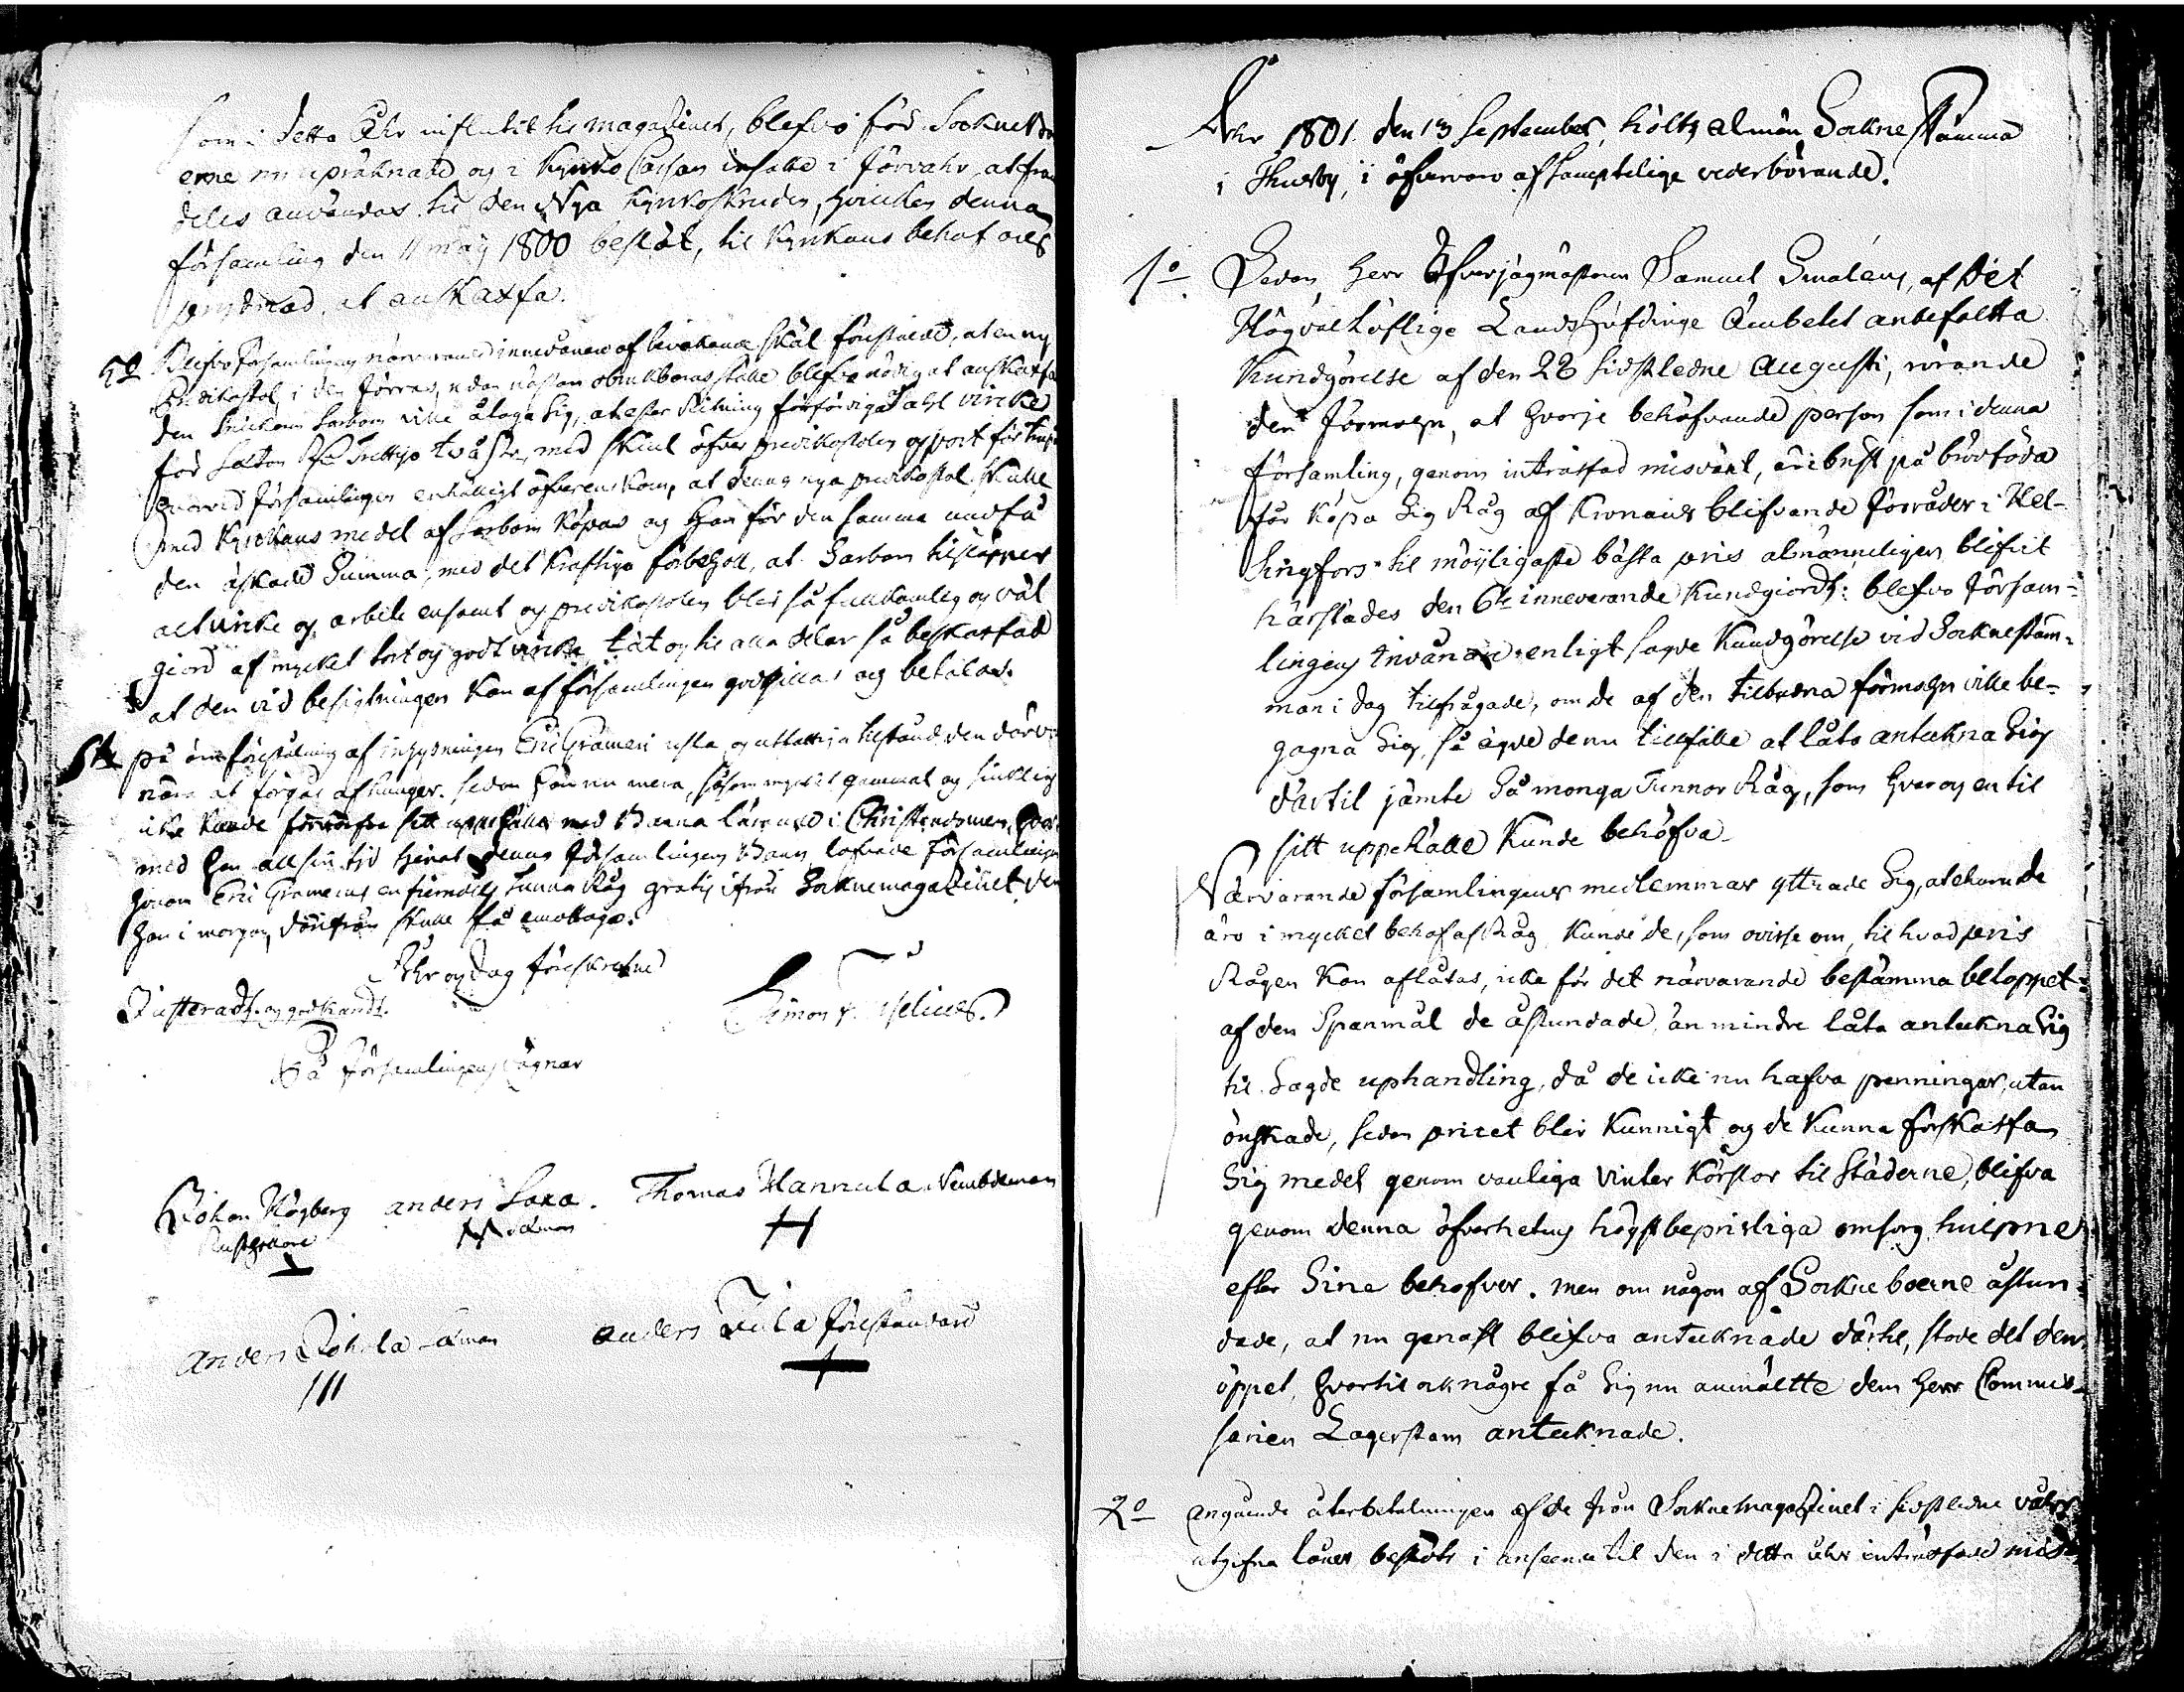 som i detta Åhr influtit til magasinet, blefvo för Sockneboerne
erne nu upräknade og i Kyrko Cassan insatte i förvahr, at fram
deles användas til den Nya Kyrkoskruden, hvilken denna
församling den 11 Maij 1800 beslöt, til Kyrkans behof och
prydnad, at anskaffa.
5o Blefvo Församlingens närvarande af bevekande skäl förestäldt, at en ny
Predikstol i den förras, nedan nästan obrukbaras ställe blefve nödig at anskaffa
den Snickaren Sarbom ville åtaga sig, at efter Ritning förfärdiga af virke
för Trettijo två Rdr, med skiul öfver predikstolen og port för
hvarvid församlingen enhälligt öfverenskom, at denna nya predikstol skulle
med Kyrkans medel af Sarbom köpas og han för den samma undfå
den äskade Summa, med det kraftiga förbehåll, at Sarbom tilsläpper
alt virke og arbete ensamt og predikstolen blir så fullkomlig og väl
giord af mycket tort og godt virke, tät og til alla delar så beskaffad
at den vid besigtningen kan af församlingen godkännas og betalas.
på ömförestälning af inhysningen Eric Grameni usla og utfattiga tilstånd, den där
nära at förgås af hunger. sedan han nu mera, såsom mycket gammal og siuklig
icke kunde förskaffa sitt uppehälle med Barna lärande i Christendomen, hvar
med han all sin tid tienat denna församlingens Barn, lofvade församlingen
honom Eric Gramenius en fierndels Tunna Råg gratis ifrån Socknemagasinet, den
han i morgon därifrån skulle få emottaga.
Åhr og dag föreskrefne
Justeradt og godkändt. Simon
På Församlingens vägnar
Johan Högberg Anders Saxa. Thomas Hannula Nembdeman
Rusthållare
Anders Johola Anders Jula förestandare
Åhr 1801 den 13 September, höltz almän Sockne Stämma
i Thusby, i öfvervaro af samptelige vederbörande.
1o Sedan Herr Öfverjägmästaren Samuel Smaléns, af Det
Högvälloflige Landshöfdinge Ämbetet anbefallta
Kundgörelse af den 28 sidstledne Augusti, rörande
den förmohn, at hvarje behöfvande person som i denna
församling, genom inträffad misväxt, är i brist på brödföda
får köpa Sig Råg af Kronans blifvande förråder i Hel-
singfors til möijligaste bästa pris almänneligen blifvit
härstädes den 6te innevarande Kundgiordt: blefvo försam-
lingens invånare enligt sagde Kundgörelse vid Socknestäm-
man i dag tilfrågade, om de af den tilbudna förmohn ville be-
gagna Sig, så ägde de nu tillfälle at låta anteckna Sig
därtil jämte Så många Tunnor Råg, som hvar og en til
sitt uppehälle Kunde behöfva.
Närvarande församlingens medlemmar yttrade Sig, at ehuru de
äro i mycket behof af Råg kunde de, som ovisse om, til hvad pris
Rågen kan aflåtas, icke för det närvarande bestämma beloppet
af den Spanmål de åstundade, än mindre låta anteckna Sig
til Sagde uphandling, då de icke nu hafva penningar, utan
önskade, sedan priset blir kunnigt og de kunna förskaffa
Sig medel genom vanliga vinter körslor til Städerne, blifva
genom denna öfverhetens högst beprisliga omsorg hulpne
efter Sina behofver. men om någon af Sockneboerne åstun-
dade, at nu genast blifva antecknade därtil, stode det dem
öppet, hvartil ock någre få Sig nu anmälte dem Herr Commis-
sarien Lagerstam antecknade.
2o Angående återbetalningen af de från Socknemagasinet i sidstledne våhr
utgifna låner beslöts i anseende til den i detta åhr inträffade miss-